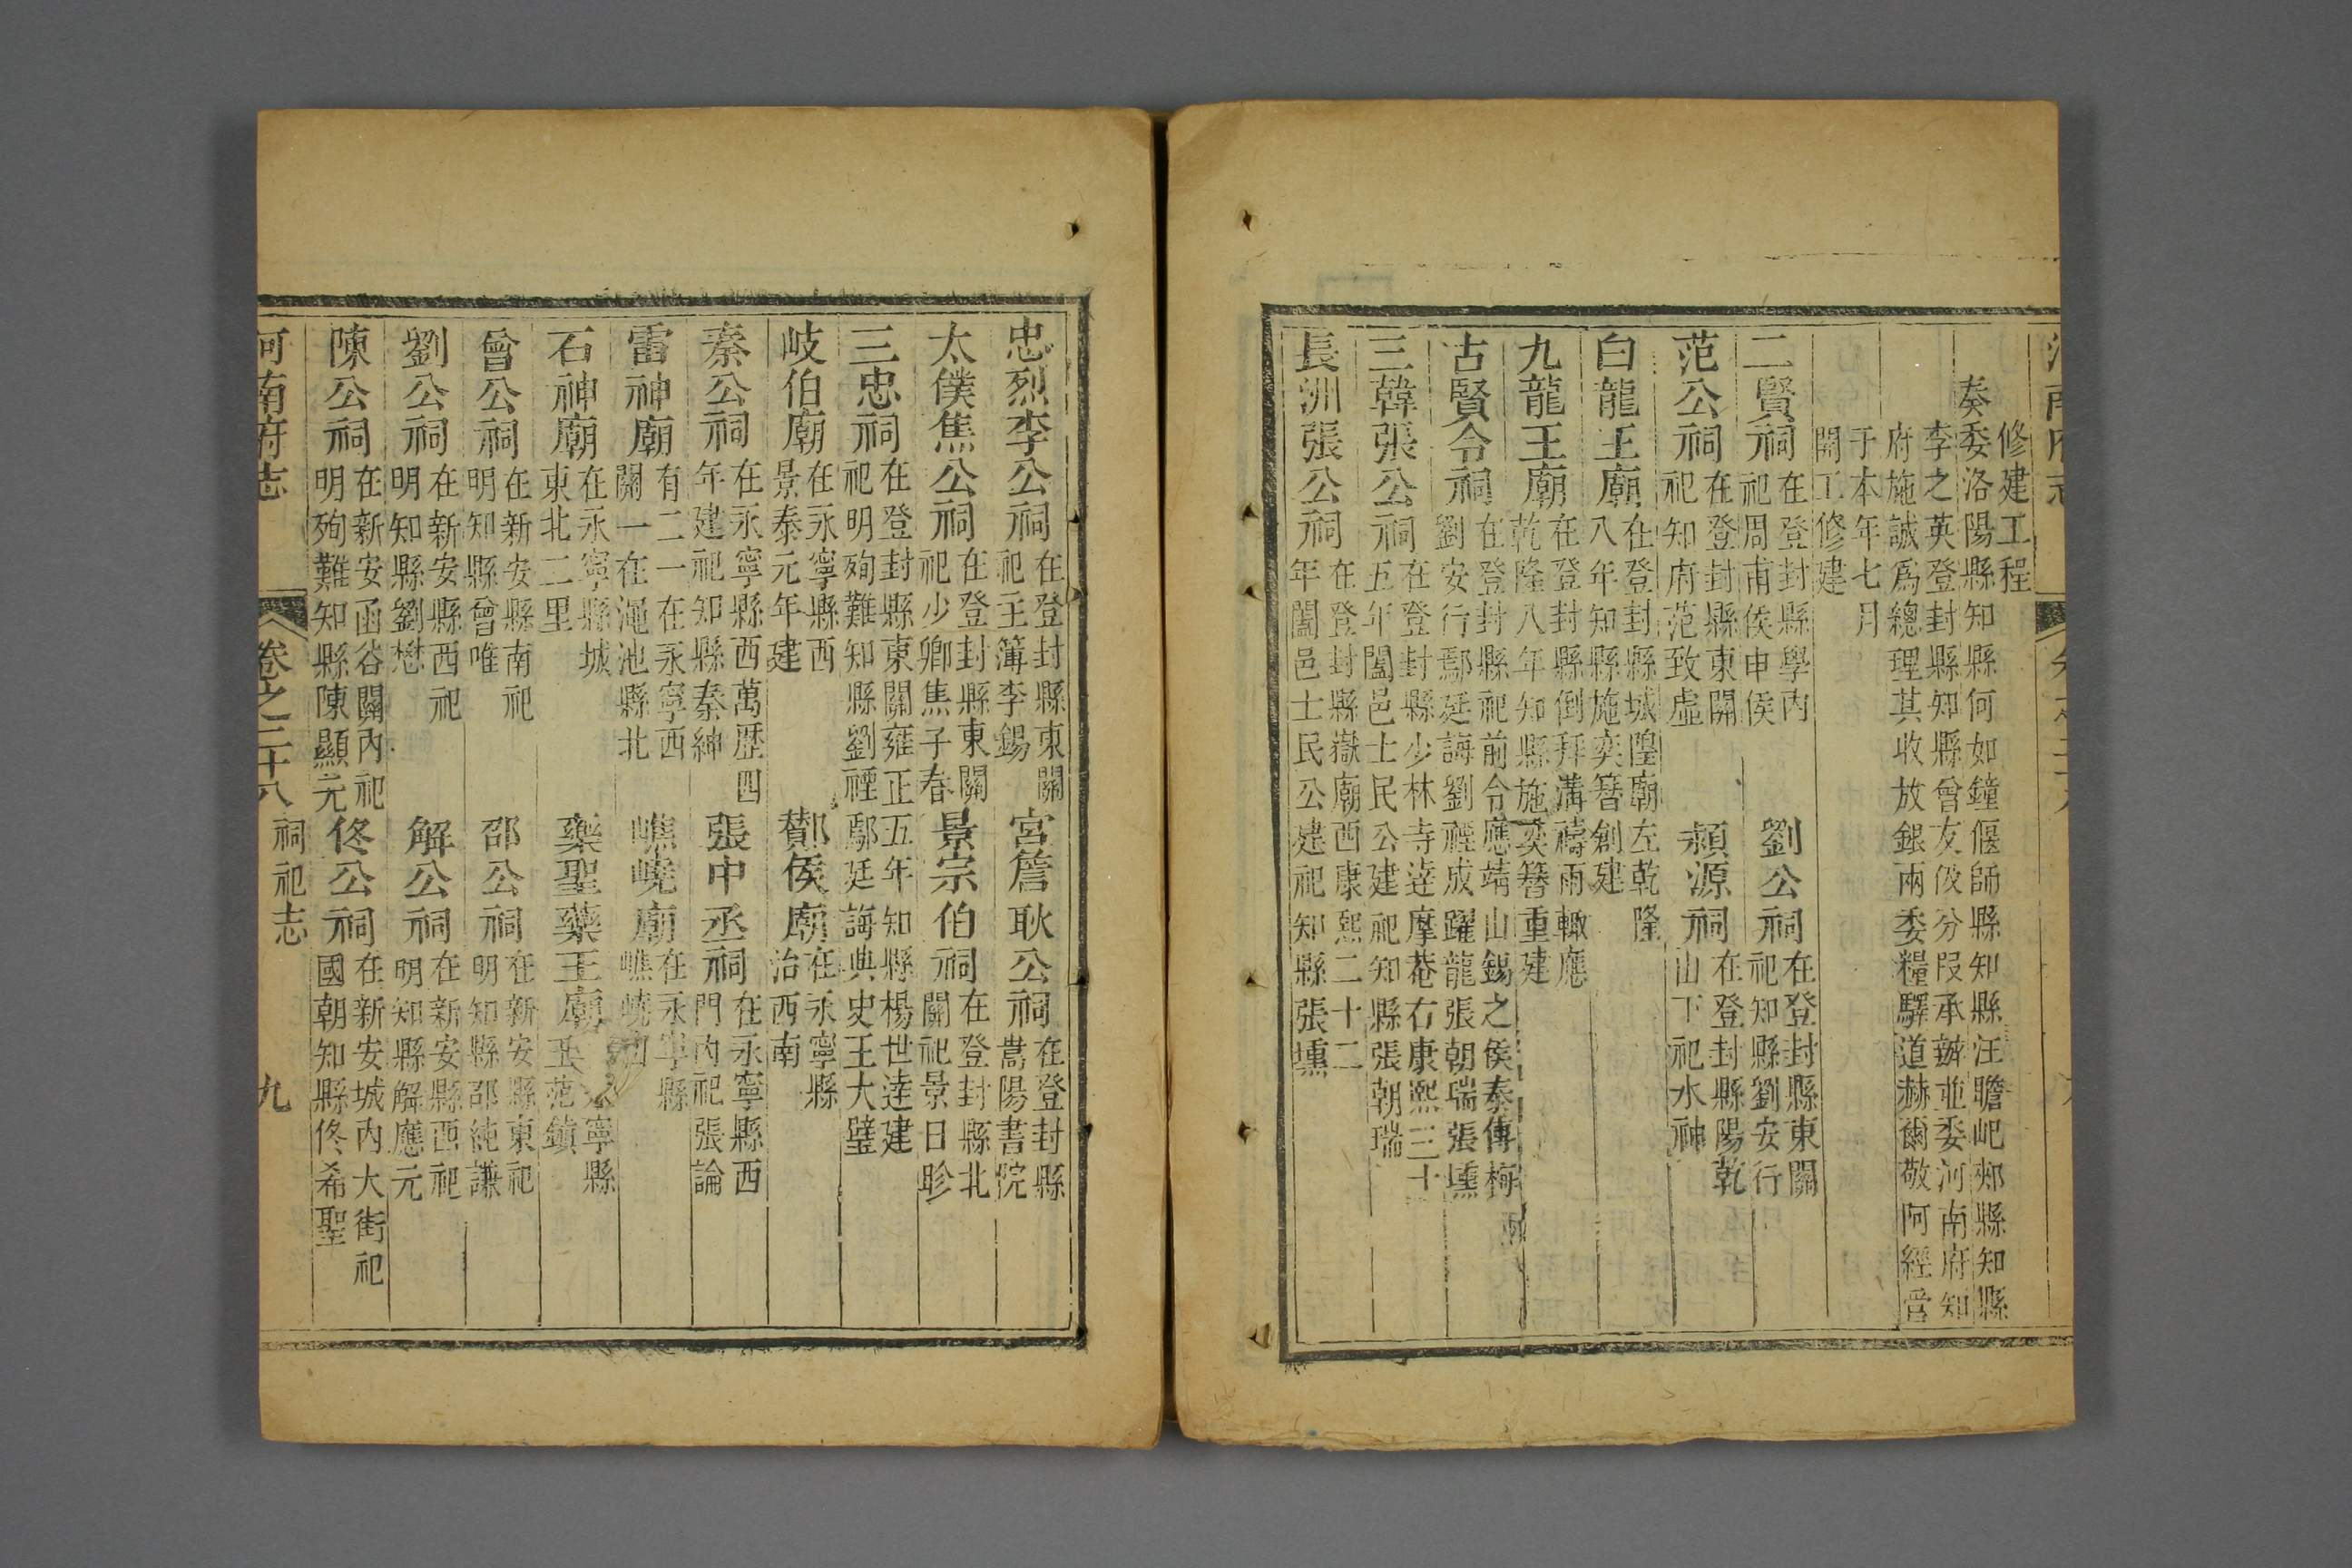 修建工程
奏委洛陽縣知縣何如鐘偃師縣知縣汪瞻屺郟縣知縣
李之英登封縣知縣曾友伋分段承辦並委河南府知
府施誠爲總理其收放銀兩委糧驛道赫爾敬阿經管
于本年七月
開工修建
二賢祠在登封縣學內祀周甫侯申侯
劉公祠在登封縣東關祀知縣劉安行
范公祠在登封縣東關祀知府范致虛
潁源祠在登封縣陽乾山下祀水神
白龍王廟在登封縣城隍廟左乾隆八年知縣施奕簪創建
九龍王廟在登封縣倒拜溝禱雨輙應乾隆八年知縣施奕簪重建
古賢令祠在登封縣祀前令應靖山錫之侯泰傅梅劉安行鄢廷誨劉禋成躍龍張朝瑞張壎
三韓張公祠在登封縣少林寺達摩菴右康熙三十五年闔邑士民公建祀知縣張朝瑞
長洲張公祠在登封縣嶽廟西康熙二十二年闔邑士民公建祀知縣張壎
忠烈李公祠在登封縣東關祀主簿李錫
宮詹耿公祠在登封縣嵩陽書院
太僕焦公祠在登封縣東關祀少卿焦子春
景宗伯祠在登封縣北關祀景日昣
三忠祠在登封縣東關雍正五年知縣楊世達建祀明殉難知縣劉禋鄢廷誨典史王大璧
岐伯廟在永寧縣西景泰元年建
酇侯廟在永寧縣治西南
秦公祠在永寧縣西萬歴四年建祀知縣秦紳
張中丞祠在永寧縣西門內祀張論
雷神廟有二一在永寧西關一在澠池縣北
嶕嶢廟在永寧縣嶕嶢
石神廟在永寧縣城東北二里
藥聖藥王廟寧縣王范鎮
曾公祠在新安縣南祀明知縣曾唯
邵公祠在新安縣東祀明知縣邵純謙
劉公祠在新安縣西祀明知縣劉懋
解公祠在新安縣西祀明知縣解應元
陳公祠在新安函谷關內祀明殉難知縣陳顯元
佟公祠在新安城內大街祀國朝知縣佟希聖
河南府志 卷之二十八 祠祀志 九